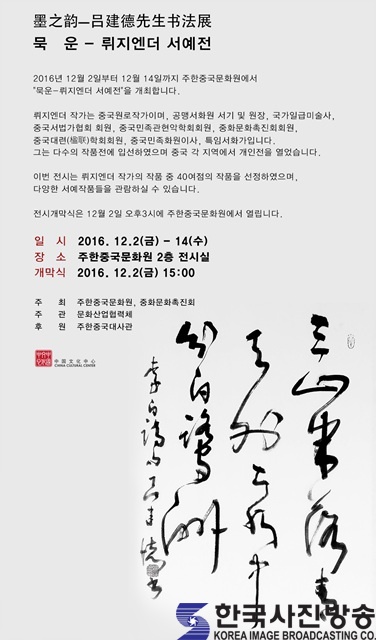 墨之韵—吕建德先生书法展
묵 운 - 뤼지엔더 서예전
2016년 12월 2일부터 12월 14일까지 주한중국문화원에서
"묵운-뤼지엔더 서예전"을 개최합니다.
뤼지엔더 작가는 중국원로작가이며, 공맹서화원 서기 및 원장, 국가일급미술사,
중국서법가협회 회원, 중국민족관현악학회회원, 중화문화촉진회회원,
중국대련(楹联)학회회원, 중국민족화원이사, 특임서화가입니다.
그는 다수의 작품전에 입선하였으며 중국 각 지역에서 개인전을 열었습니다.
이번 전시는 뤼지엔더 작가의 작품 중 40여점의 작품을 선정하였으며,
다양한 서예작품들을 관람하실 수 있습니다.
전시개막식은 12월 2일 오후3시에 주한중국문화원에서 열립니다.
일 시 2016. 12.2(금) - 14(수)
장 소 주한중국문화원 2층 전시실
개막식 2016. 12.2(금) 15:00
주 최 주한중국문화원, 중화문화촉진회
주 관 문화산업협력체
후 원 주한중국대사관
中国文化中心
CHINA CULTURAL CENTER
三山半落青
天外二水中
分白鹭洲
李白诗句吕建德书
한국사진방송
KOREA IMAGE BROADCASTING CO